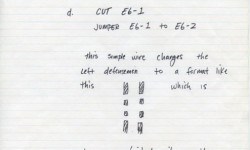 d. CUT E6-1
JUMPER E6-1 to E6-2
this simple wire changes the
left defensemen to a format like
this which is